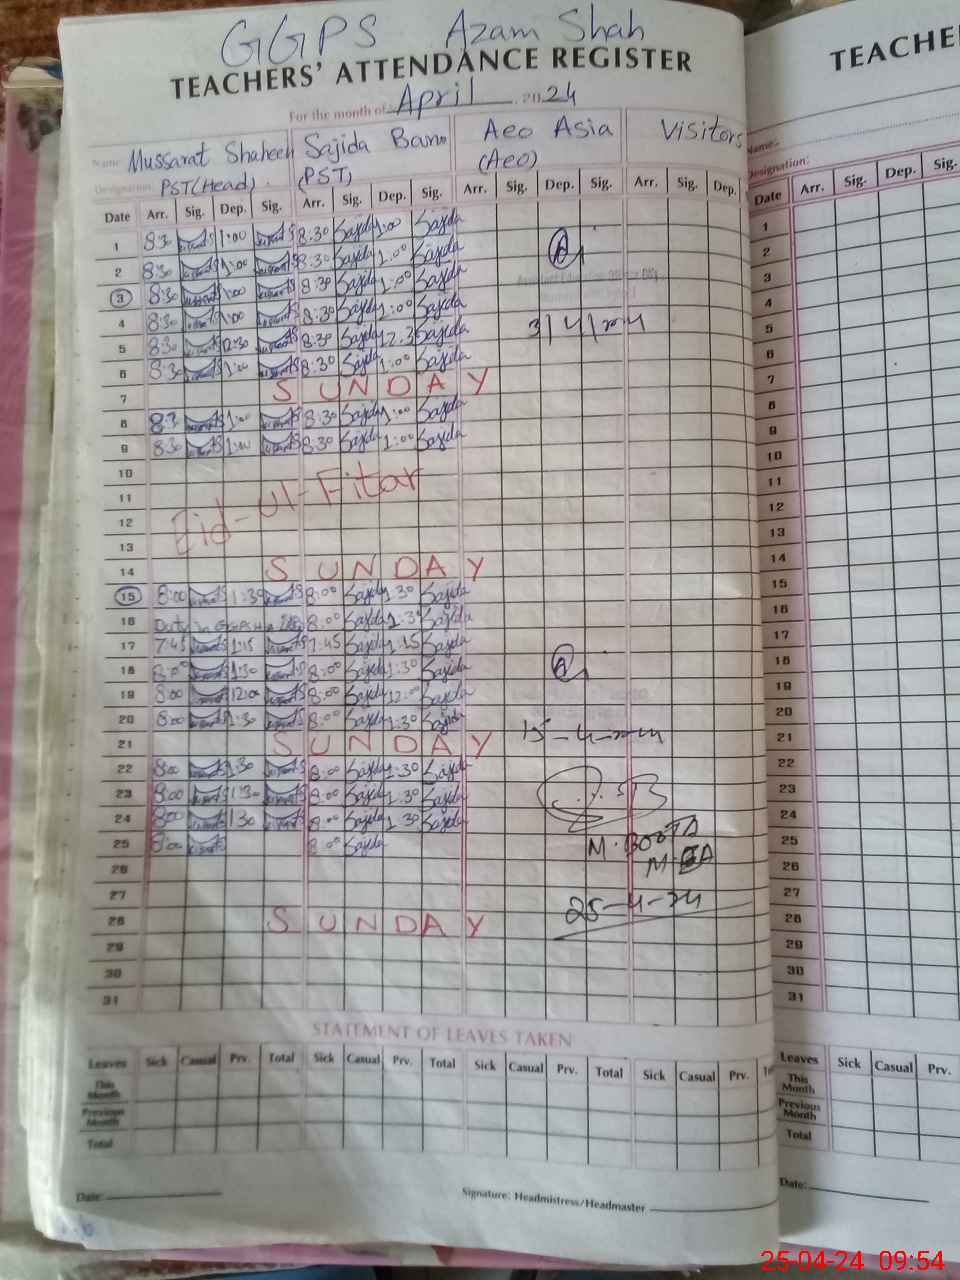 GGPS Azam Shah
TEACHERS' ATTENDANCE REGISTER
For the month of April 2024
Name: Mussarat Shaheen Sajida Bano Aeo Asia Visitors
Designation: PST(Head). (PST) (Aeo)
Date Arr. Sig. Dep. Sig. Arr. Sig. Dep. Sig. Arr. Sig. Dep. Sig. Arr. Sig. Dep.
1 8:30 1:00 8:30 Sajida 1:00 Sajida
2 8:30 1:00 8:30 Sajida 1:00 Sajida
3 8:30 1:00 8:30 Sajida 1:00 Sajida
4 8:30 1:00 8:30 Sajida 1:00 Sajida
5 8:30 12:30 8:30 Sajida 12:3 Sajida 3/4/24
6 8:30 1:00 8:30 Sajida 1:00 Sajida
7 SUNDAY
8 8:3 1:00 8:30 Sajida 1:00 Sajida
9 8:30 1:00 8:30 Sajida 1:00 Sajida
10
11 Eid-ul-Fitar
12
13
14 SUNDAY
15 8:00 1:30 8:00 Sajida 1:30 Sajida
16 Duty in 8:00 Sajida 1:3 Sajida
17 7:45 1:15 7:45 Sajida 1:15 Sajida
18 8:00 1:30 8:00 Sajida 1:30 Sajida
19 8:00 12:00 8:00 Sajida 12:00 Sajida
20 8:00 1:30 8:00 Sajida 1:30 Sajida
21 SUNDAY 15-4-24
22 8:00 1:30 8:00 Sajida 1:30 Sajida
23 8:00 1:30 8:00 Sajida 1:30 Sajida
24 8:00 1:30 8:00 Sajida 1:30 Sajida
25 8:00 8:00 Sajida M. BOOTA
26 M.EA
27 25-4-24
28 SUNDAY
29
30
31
STATEMENT OF LEAVES TAKEN
Leaves Sick Casual Prv. Total Sick Casual Prv. Total Sick Casual Prv. Total Sick Casual Prv.
This Month
Previous Month
Total
Date: Signature: Headmistress/Headmaster
TEACHE
Name:
Designation:
Date Arr. Sig. Arr. Sig.
1
2
3
4
5
6
7
8
9
10
11
12
13
14
15
16
17
18
19
20
21
22
23
24
25
26
27
28
29
30
31
Leaves Sick Casual Prv.
This Month
Previous Month
Total
Date:
25-04-24 09:54